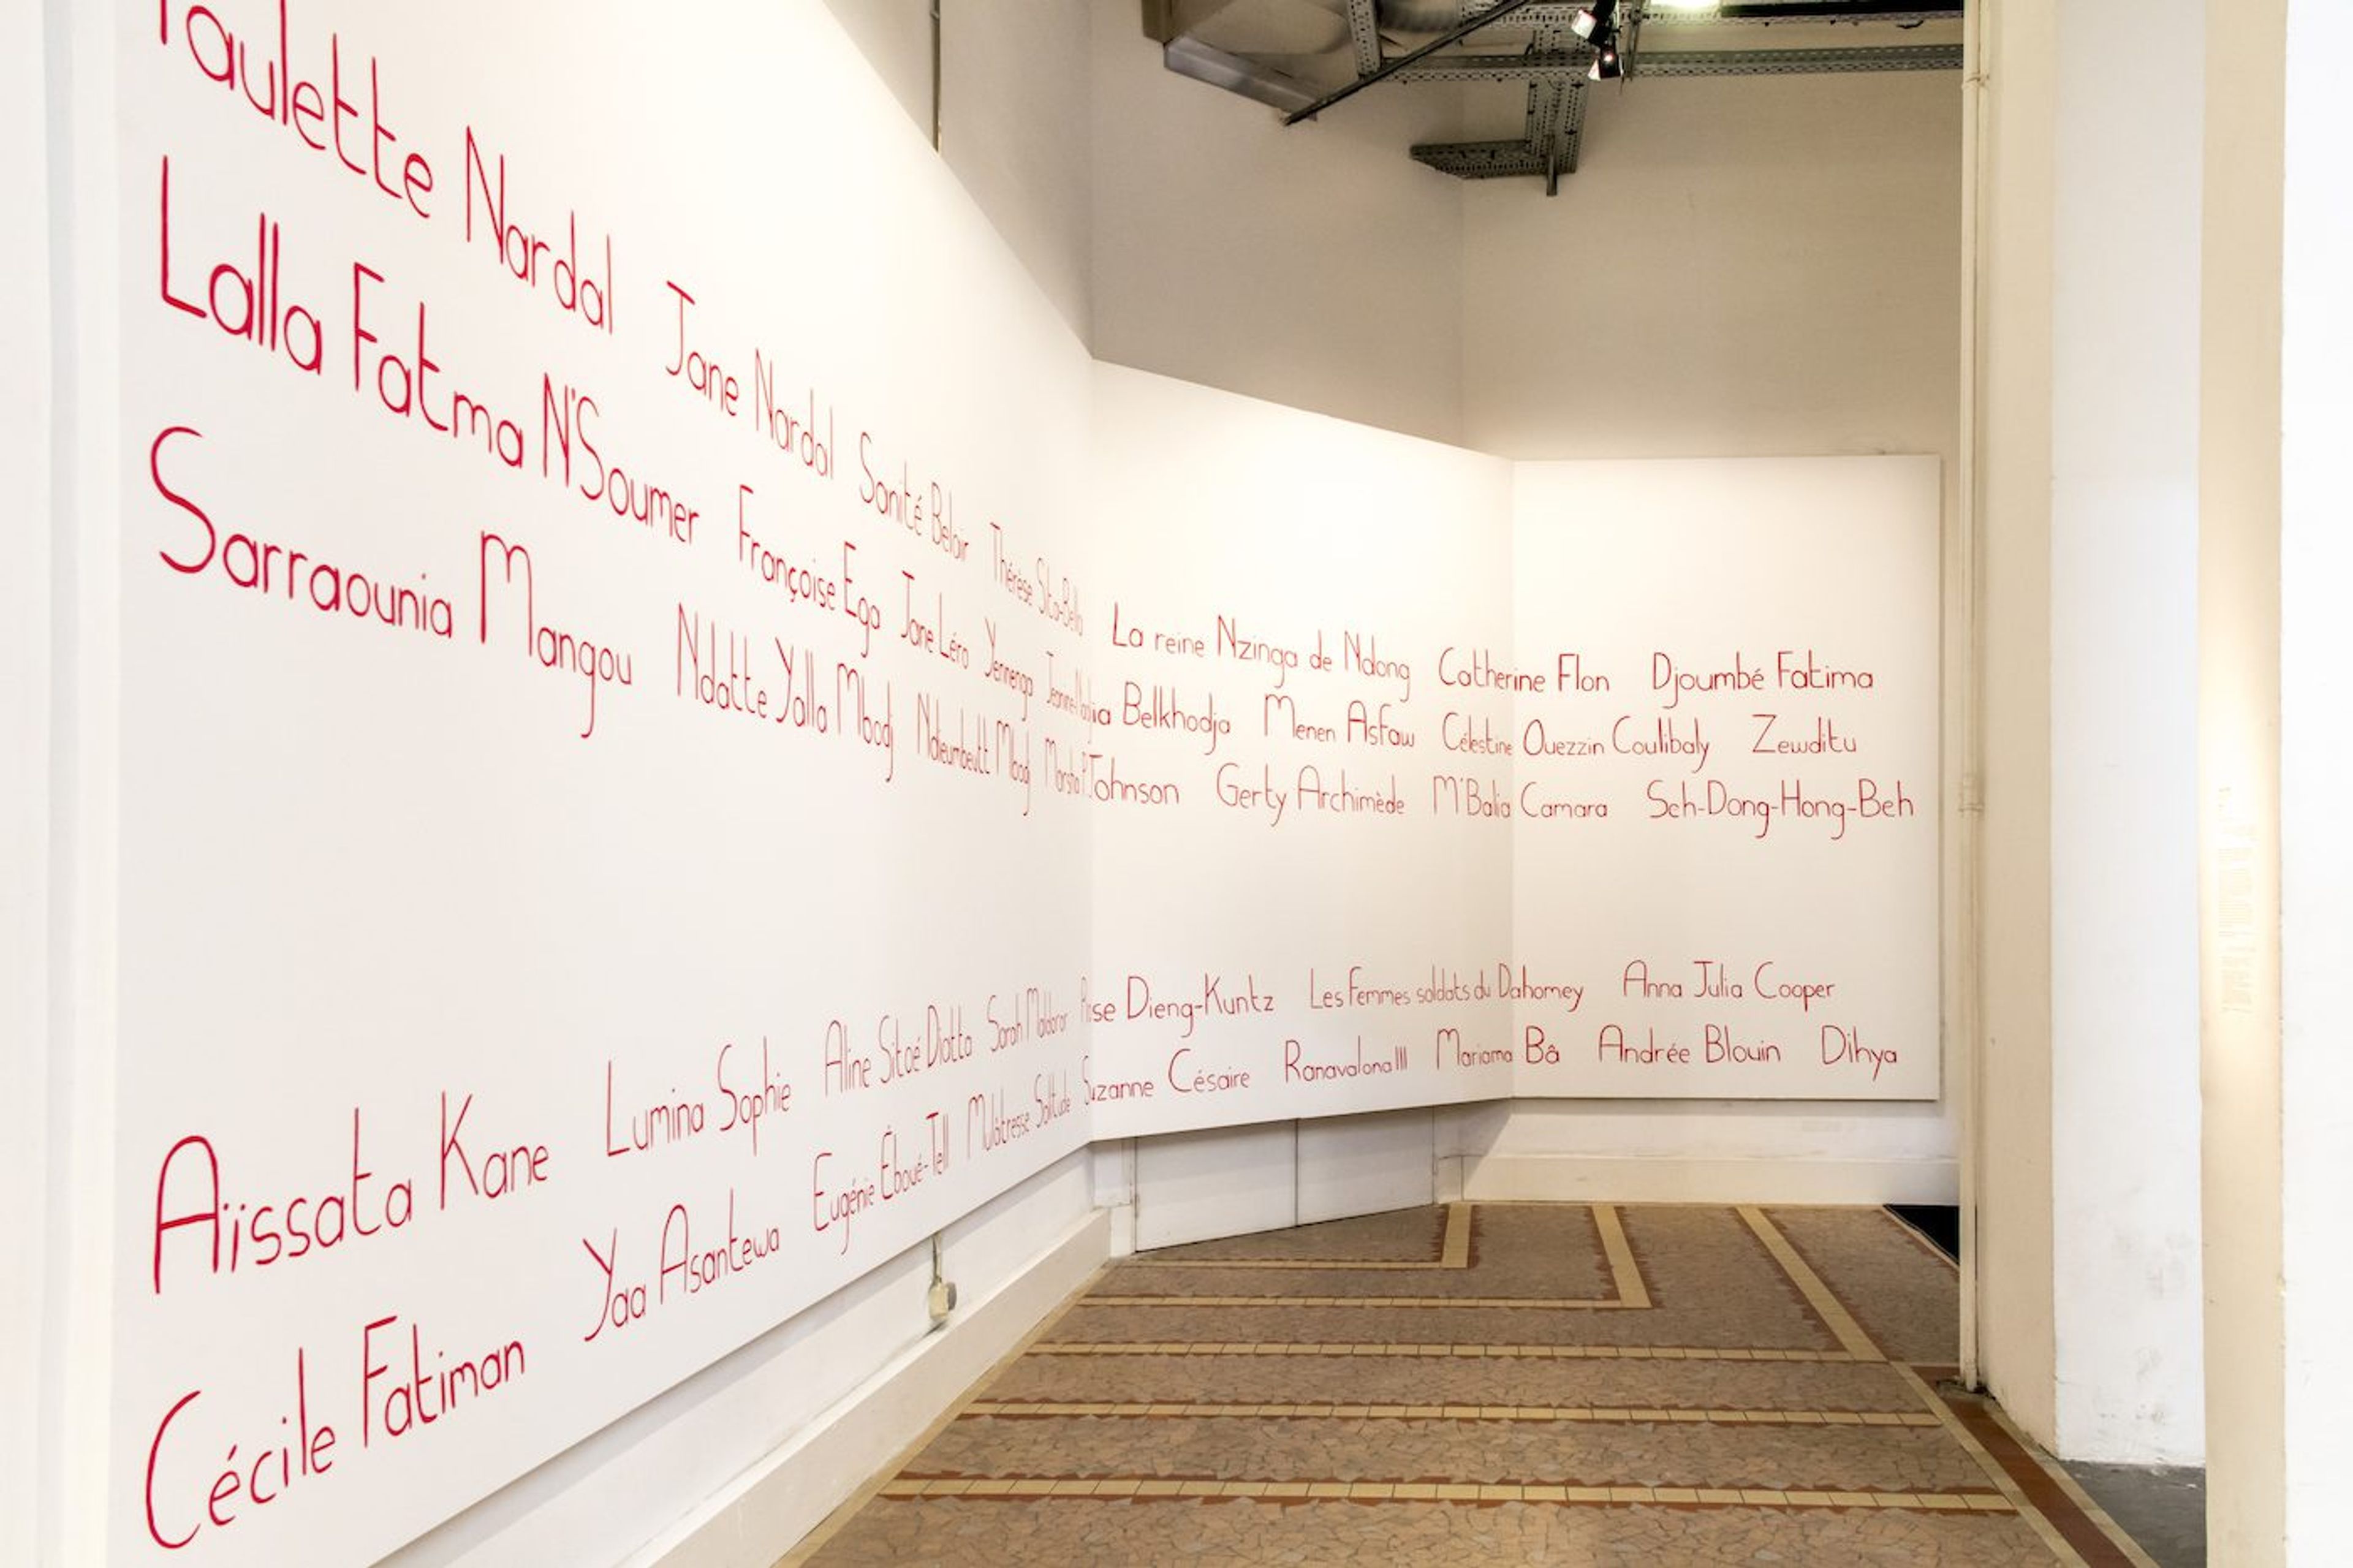 Paulette Nardal Jane Nardal Sanité Belair Thérèse Sita-Bella La reine Nzinga de Ndong Catherine Flon Djoumbé Fatima
Lalla Fatma N'Soumer Françoise Ega Jane Léro Yennenga Belkhodja Menen Asfaw Célestine Ouezzin Coulibaly Zewditu
Sarraounia Mangou Ndatte Yalla Mbodj Ndieumbeutt Mbodj Marsha P Johnson Gerty Archimède M'Balia Camara Seh-Dong-Hong-Beh
Aïssata Kane Lumina Sophie Aline Sitoé Diatta Sarah Maldoror Dieng-Kuntz Les Femmes soldats du Dahomey Anna Julia Cooper
Cécile Fatiman Yaa Asantewa Eugénie Éboué-Tell Mulâtresse Solitude Suzanne Césaire Ranavalona III Mariama Bâ Andrée Blouin Dihya